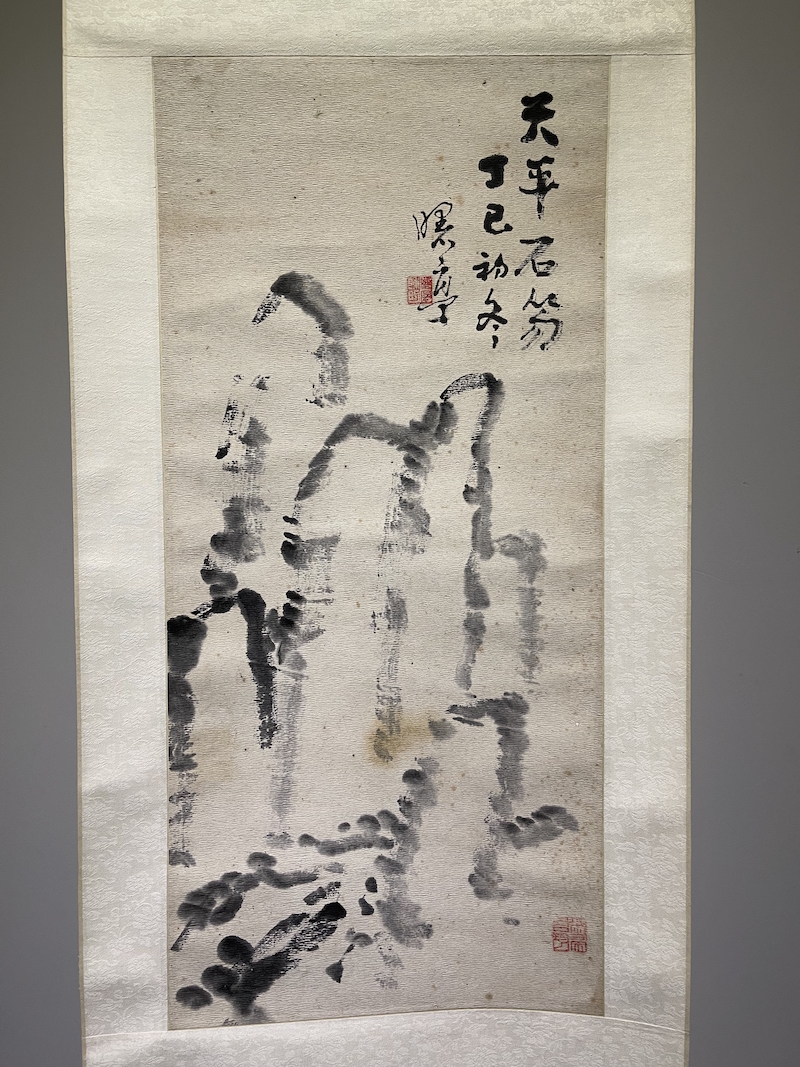 天平石笏
丁巳初冬
曙亭